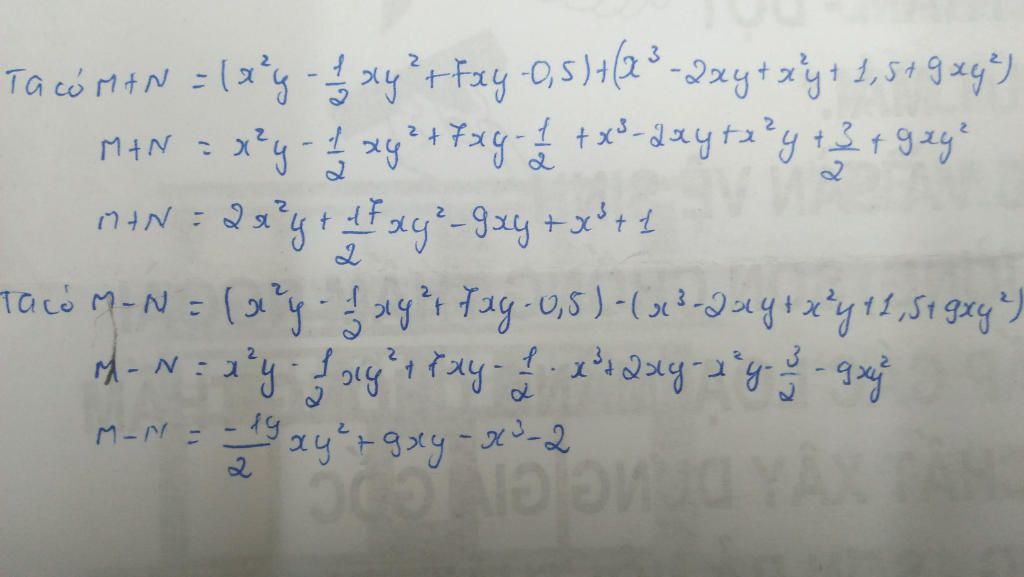 Ta có M+N = (x²y - 1/2 xy² + 7xy - 0,5) + (x³ - 2xy + x²y + 1,5 + 9xy²)
M+N = x²y - 1/2 xy² + 7xy - 1/2 + x³ - 2xy + x²y + 3/2 + 9xy²
M+N = 2x²y + 17/2 xy² - 9xy + x³ + 1
Ta có M-N = (x²y - 1/2 xy² + 7xy - 0,5) - (x³ - 2xy + x²y + 1,5 + 9xy²)
M-N = x²y - 1/2 xy² + 7xy - 1/2 - x³ + 2xy - x²y - 3/2 - 9xy²
M-N = -19/2 xy² + 9xy - x³ - 2